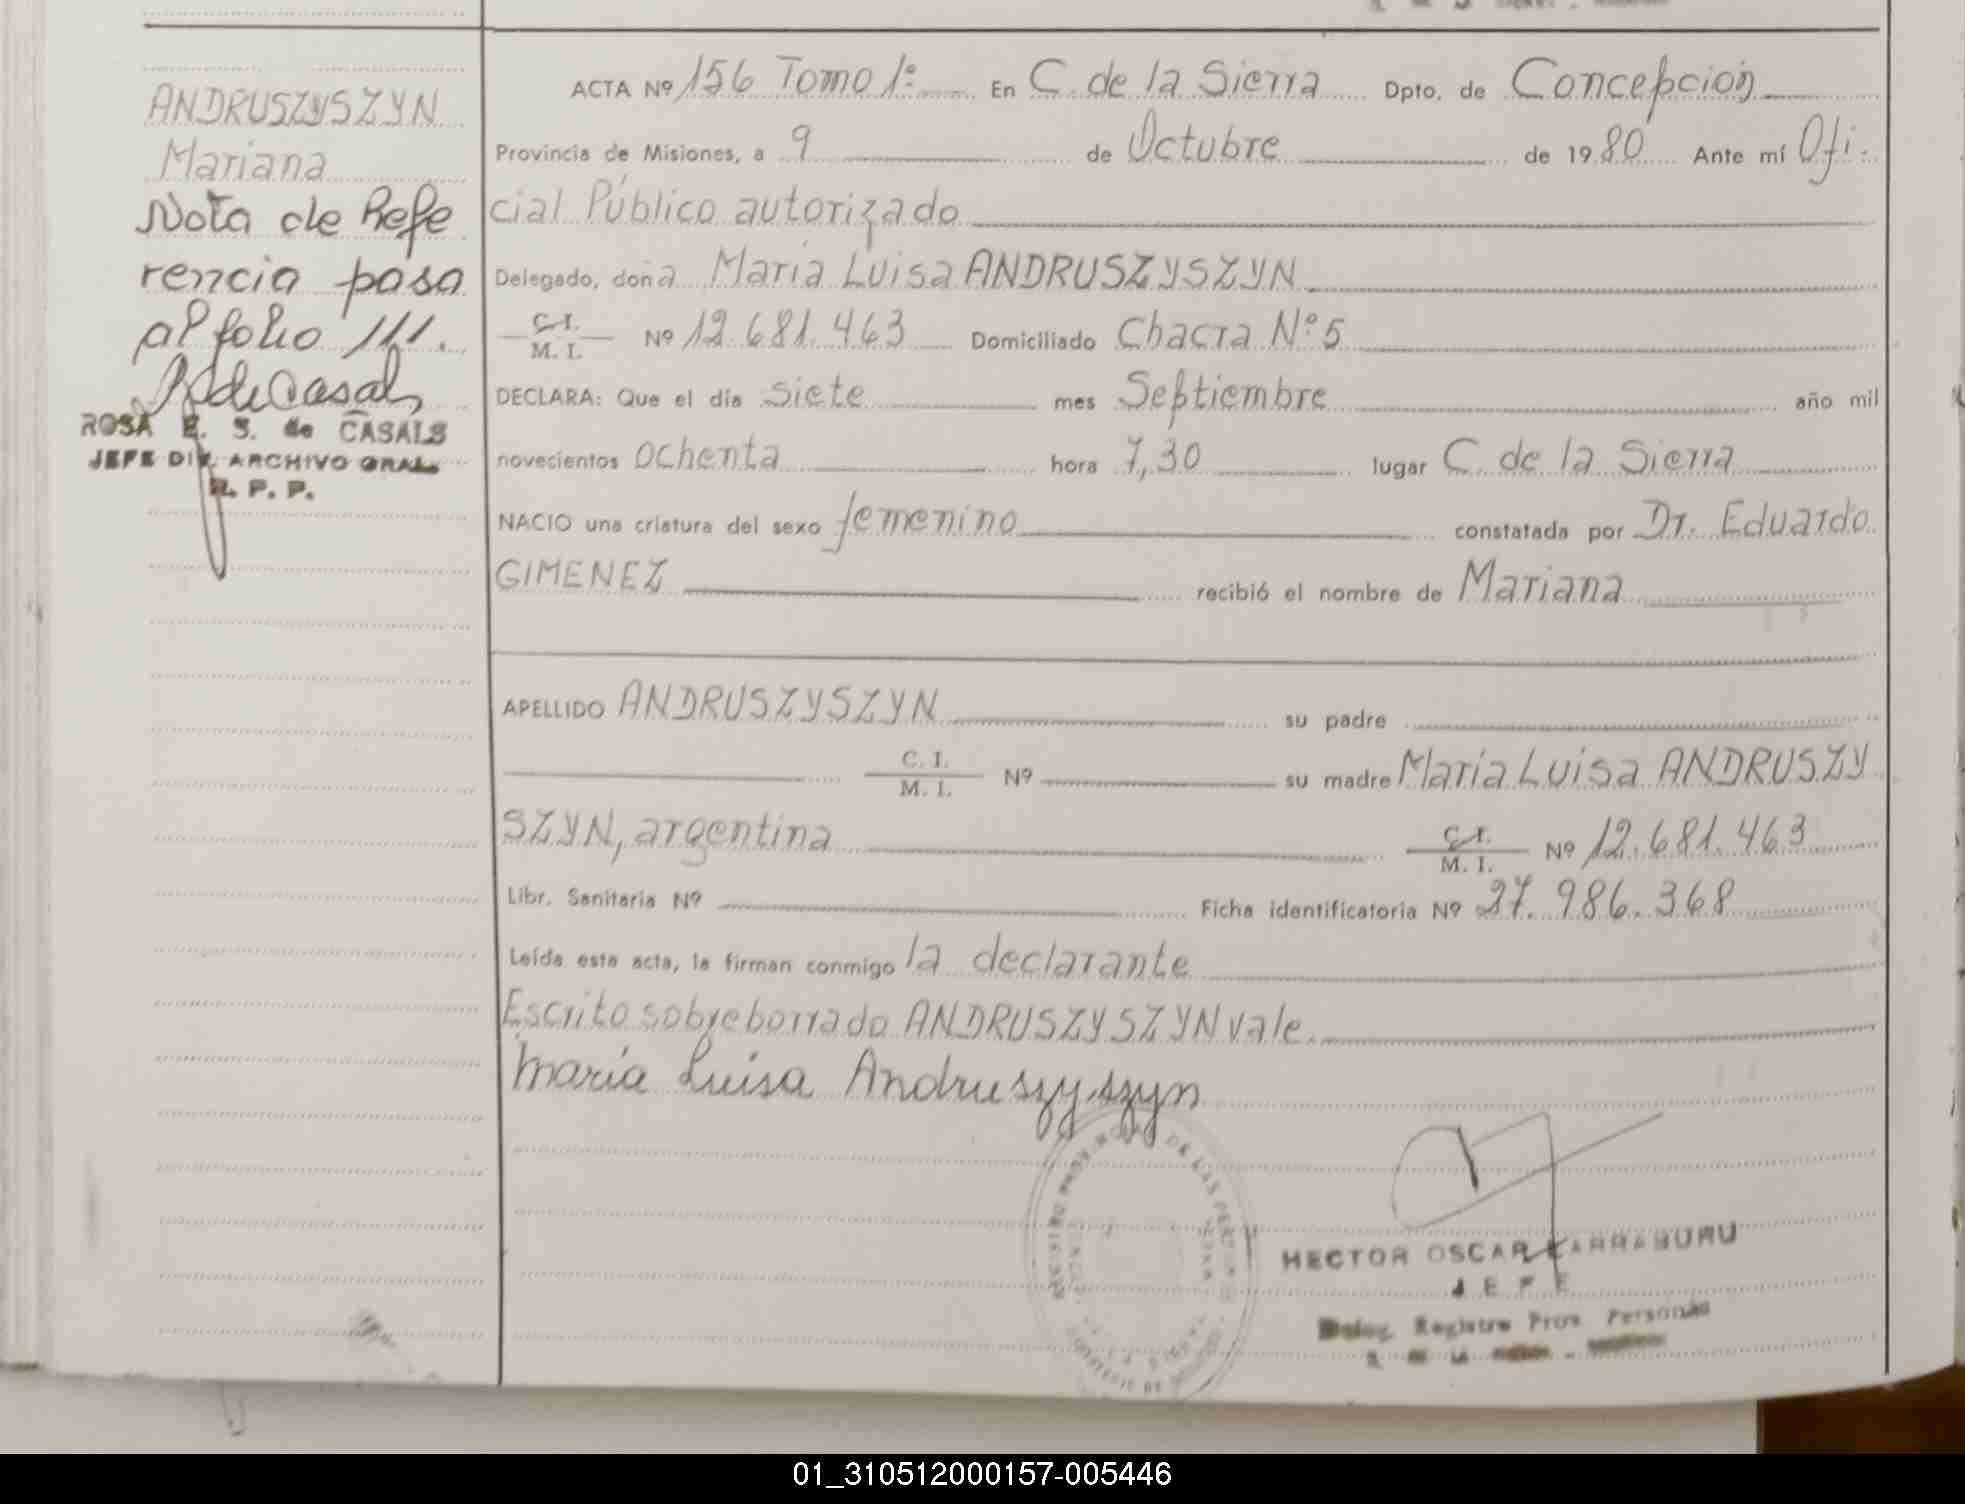 ANDRUSZYSZYN
Mariana
Nota de Refe
rencia pasa
al folio 111.
RdeCasals
ROSA E. S. de CASALS
JEFE DIV. ARCHIVO GRAL.
R. P. P.
ACTA Nº 156 Tomo 1º En C. de la Sierra Dpto. de Concepción
Provincia de Misiones, a 9 de Octubre de 1980 Ante mí Ofi.
cial Público autorizado
Delegado, doña María Luisa ANDRUSZYSZYN
C. I.
M. I. Nº 12.681.463 Domiciliado Chacra Nº 5
DECLARA: Que el día siete mes Septiembre año mil
novecientos ochenta hora 7,30 lugar C. de la Sierra
NACIO una criatura del sexo femenino constatada por Dr. Eduardo
GIMENEZ recibió el nombre de Mariana
APELLIDO ANDRUSZYSZYN su padre
C. I.
M. I. Nº su madre María Luisa ANDRUSZY
SZYN, argentina C. I.
M. I. Nº 12.681.463
Libr. Sanitaria Nº Ficha identificatoria Nº 27.986.368
Leída esta acta, la firman conmigo la declarante
Escrito sobreborrado ANDRUSZYSZYN vale.
María Luisa Andruszyszyn
HECTOR OSCAR LARRABURU
JEFE
Deleg. Registro Prov. Personas
01_310512000157-005446